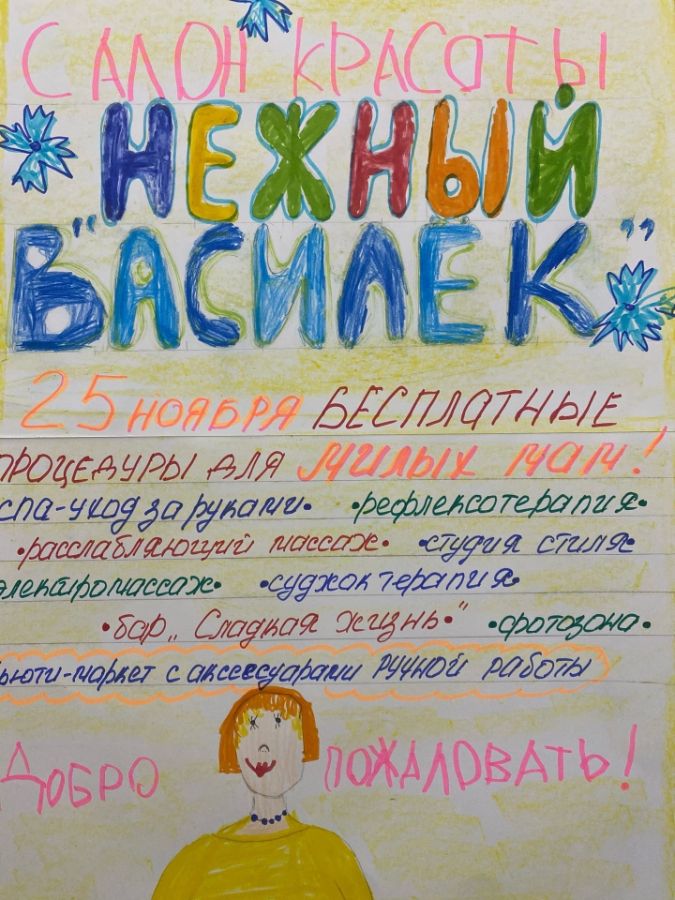 САЛОН КРАСОТЫ
НЕЖНЫЙ
"ВАСИЛЁК"
25 НОЯБРЯ БЕСПЛАТНЫЕ
ПРОЦЕДУРЫ ДЛЯ МИЛЫХ МАМ!
спа-уход за руками• •рефлексотерапия•
•расслабляющий массаж• •студия стиля•
электромассаж• •суджок терапия•
•бар „Сладкая жизнь"• •фотозона•
бьюти-маркет с аксессуарами РУЧНОЙ РАБОТЫ
ДОБРО ПОЖАЛОВАТЬ!